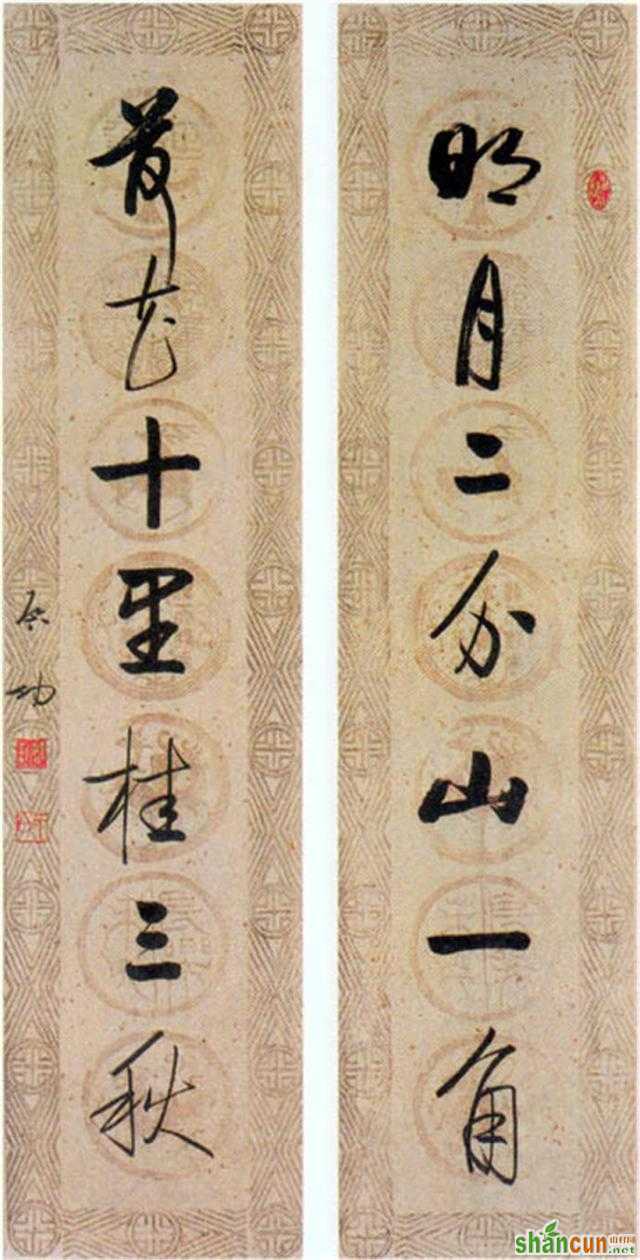 明月二分山一角
荷花十里桂三秋
启功
shancun
山村网
.net